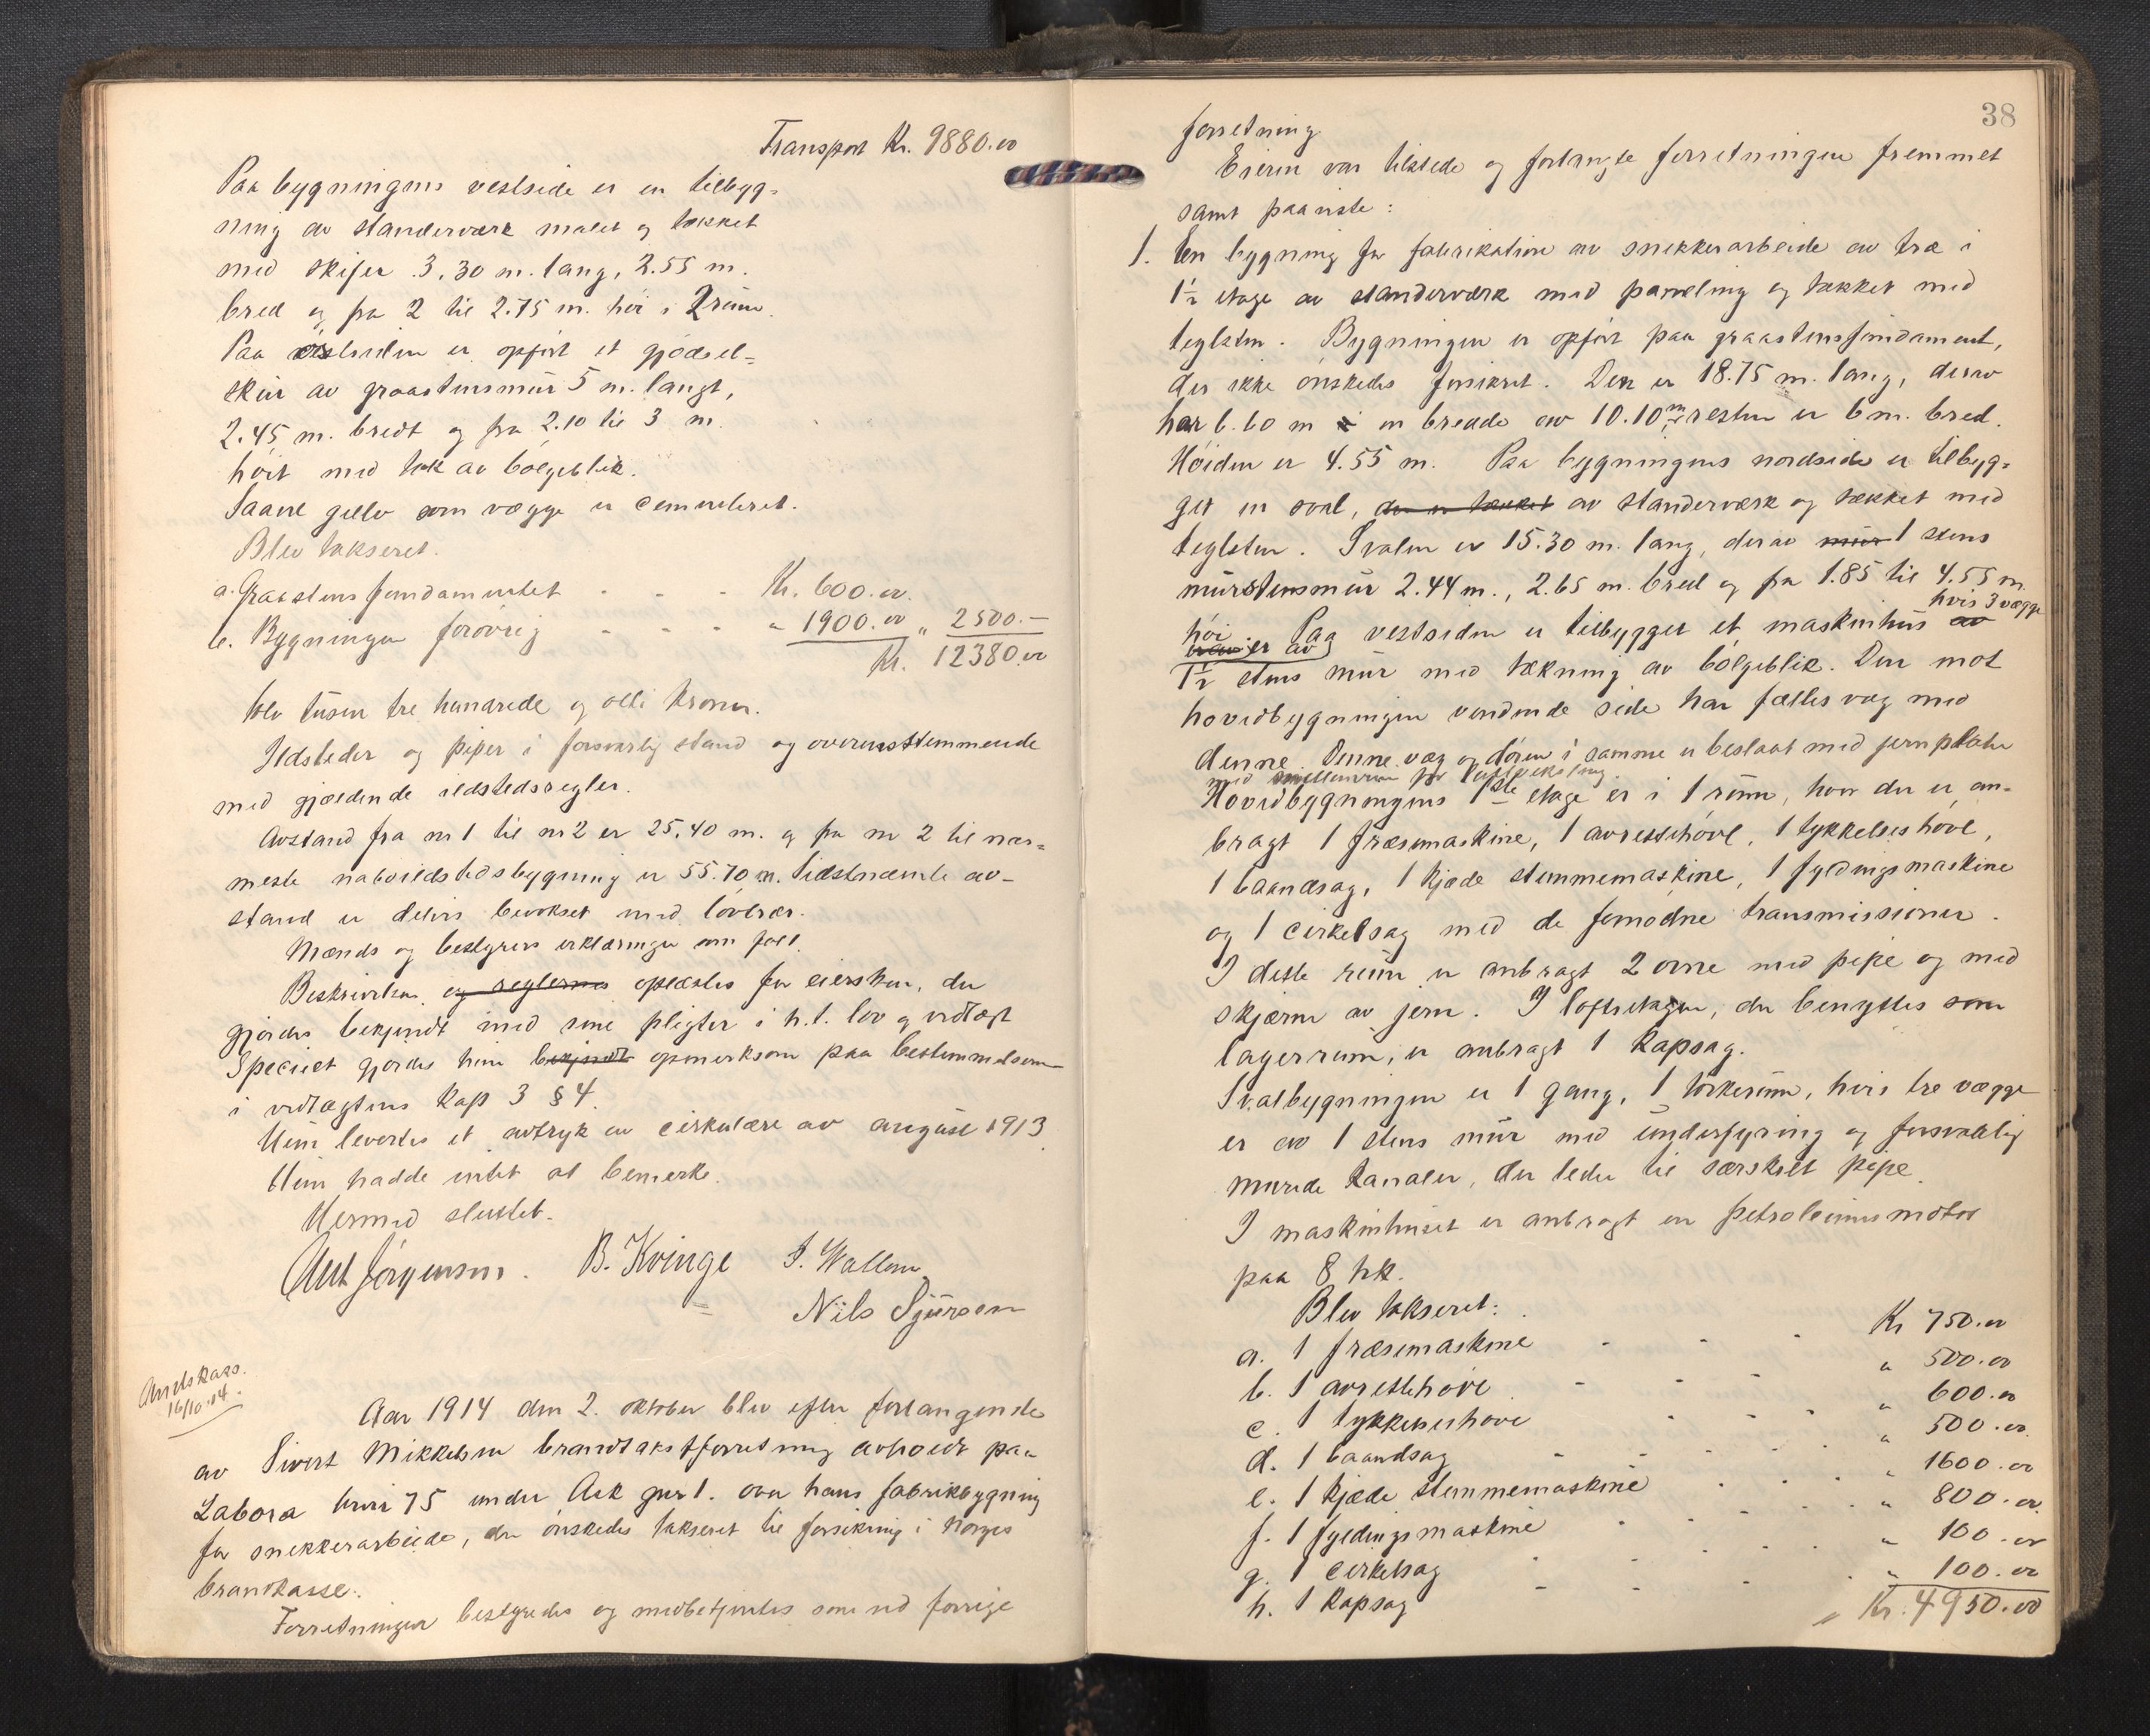 Transport Kr. 9880.00
Paa bygningens vestside er en tilbyg-
ning av standerværk malet og tækket
med skifer 3,30 m. lang, 2.55 m.
bred og fra 2 til 2.75 m. høi i 2 rum.
Paa østsiden er opført et gjødsel-
skur av graastensmur 5 m. langt,
2.45 m. bredt og fra 2.10 til 3 m.
høit med tak av bølgeblik.
Saavel gulv som vægge er cementeret.
Blev takseret.
a. Graastensfundamentet - - - Kr. 600.00
b. Bygningen forøvrig - - - - " 1900.00 " 2500.-
Kr. 12380.00
tolv tusen tre hundrede og otti kroner.
Ildsteder og piper i forsvarlig stand og overensstemmende
med gjældende ildstedsregler.
Avstand fra nr 1 til nr 2 er 25,40 m. og fra nr 2 til nær-
meste naboildstedsbygning er 55.70 m. Sidstnævnte av-
stand er delvis bevokset med løvtrær.
Mænds og bestyrers erklæringer som før.
Beskrivelsen og reglerne oplæstes for eiersken, der
gjordes bekjendt med sine pligter i h.t. lov og vedtægt
Specielt gjordes hun bekjendt opmerksom paa bestemmelserne
i vedtægtens kap 3 § 4.
Hun levertes et avtryk av cirkulære av august 1913.
Hun hadde intet at bemerke.
Hermed sluttet.
Ant Jørgensen. B. Kvinge J. Wallem
Nils Sjursen
Andskass.
16/10.14.
Aar 1914 den 2. oktober blev efter forlangende
av Sivert Mikkelsen brandtakstforretning avholdt paa
Labora bnr 75 under Ask gnr 1. over hans fabrikbygning
for snekkerarbeide, der ønskedes takseret til forsikring i Norges
brandkasse.
Forretningen bestyredes og medbetjentes som ved forrige
38
forretning
Eieren var tilstede og forlangte forretningen fremmet
samt paaviste:
1. En bygning for fabrikation av snekkerarbeide av træ i
1½ etage av standerværk med paneling og tækket med
teglsten. Bygningen er opført paa graastensfundament,
der ikke ønskedes forsikret. Den er 18.75 m. lang, derav
har 6.60 m i en bredde av 10.10 m, resten er 6 m. bred.
Høiden er 4.55 m. Paa bygningens nordside er tilbyg-
get en sval, der er tækket av standerværk og tækket med
teglsten. Svalen er 15.30 m. lang, derav mur 1 stens
murstensmur 2.44 m., 2.65 m. bred og fra 1.85 til 4.55 m.
høi. Paa vestsiden er tilbygget et maskinhus av hvis 3 vægge
er av
1½ stens mur med tækning av bølgeblik. Den mot
hovedbygningen vendende side har fælles væg med
denne. Denne væg og døren i samme er beslaat med jernplater
med mellemrum for luftveksling.
Hovedbygningens 1ste etage er i 1 rum, hvor der er an-
bragt 1 fræsemaskine, 1 avrettehøvl, 1 tykkelseshøvl,
1 baandsag, 1 kjæde stemmemaskine, 1 fyldingsmaskine
og 1 cirkelsag med de fornødne transmissioner.
I dette rum er anbragt 2 ovne med pipe og med
skjærm av jern. I loftsetagen, der benyttes som
lagerrum, er anbragt 1 kapsag.
I svalbygningen er 1 gang, 1 tørkerum, hvis tre vægge
er av 1 stens mur med underfyring og forsvarlig
murede kanaler, der leder til særskilt pipe.
I maskinhuset er anbragt en petroleumsmotor
paa 8 hk.
Blev takseret:
a. 1 fræsemaskine - - - Kr 750.00
b. 1 avrettehøvl - - - " 500.00
c. 1 tykkelseshøvl - - - " 600.00
d. 1 baandsag - - - " 500.00
e. 1 kjæde stemmemaskine - - - " 1600.00
f. 1 fyldingsmaskine - - - " 800.00
g. 1 cirkelsag - - - " 100.00
h. 1 kapsag - - - " 100.00
Kr. 4950.00